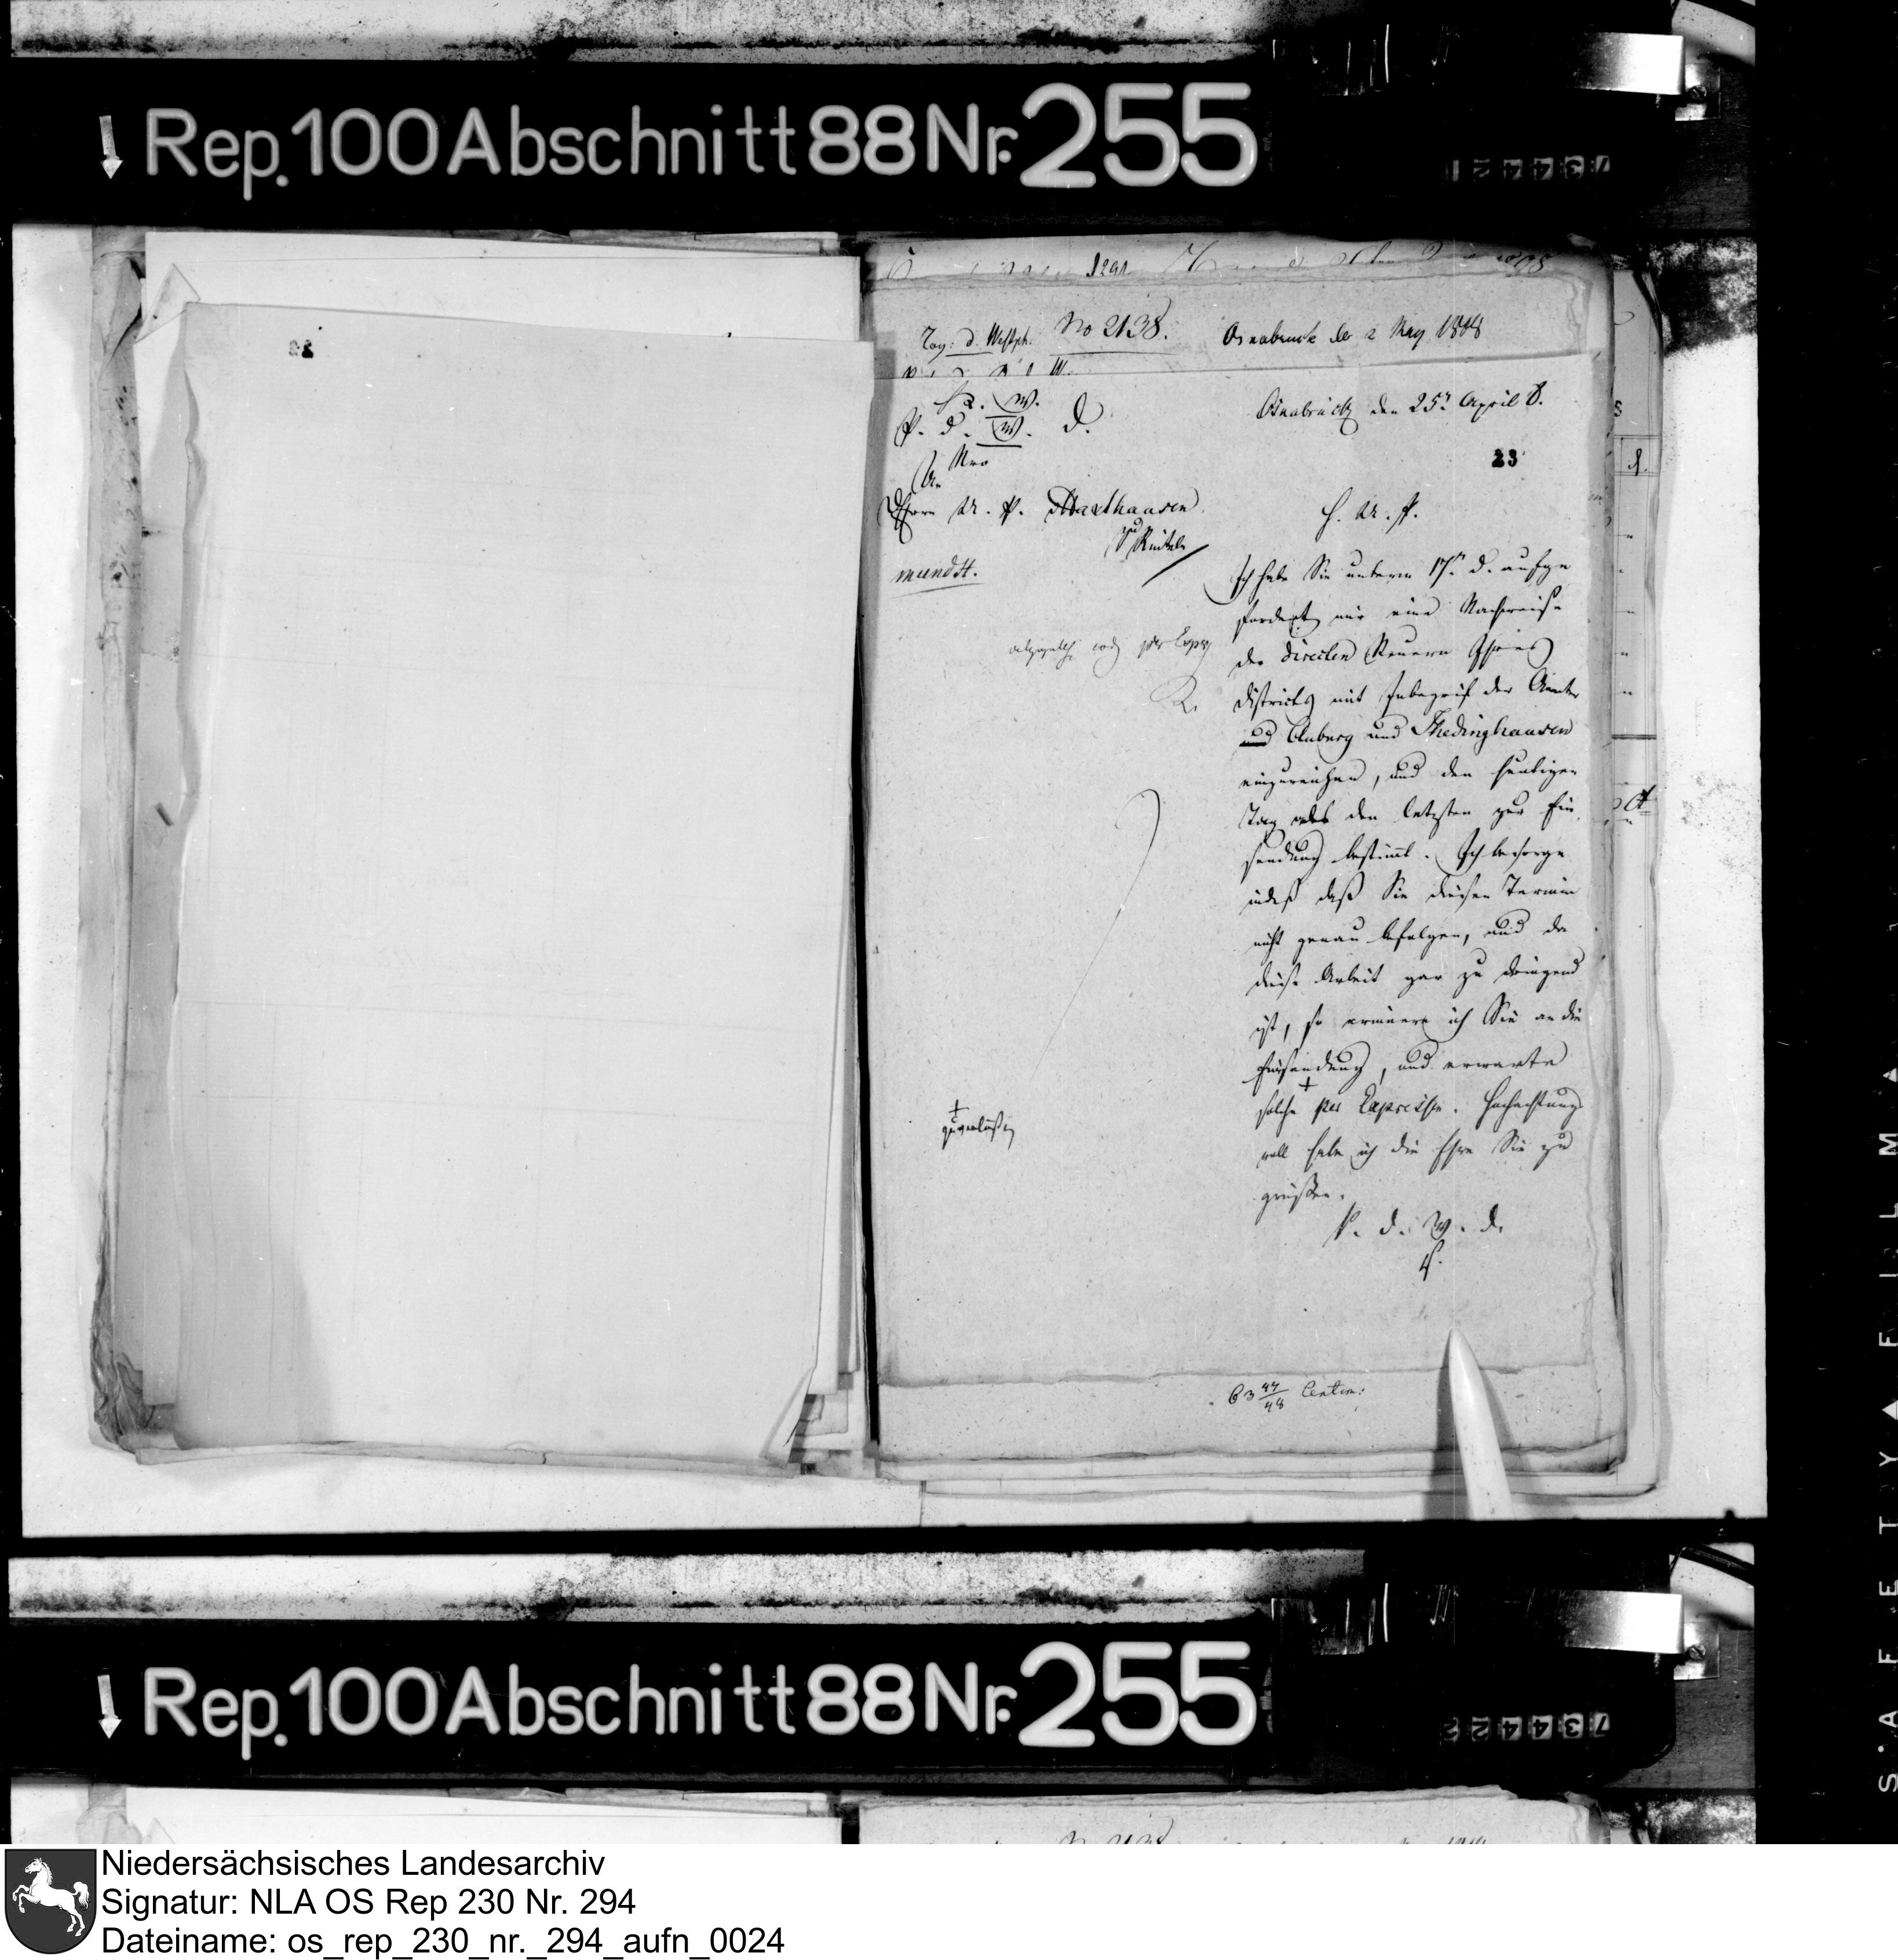 Rep. 100 Abschnitt 88 Nr. 255
734421
22
1291
Kög: d. Westph. No 2138. Osnabruck der 2 May 1808
Osnabrück den 25ⁿ April 8.
P. d. W. d.
23
An
Herrn U. P. Haxthausen
zu Rinteln
H. U. P.
mundt.
Ich habe Sie unterm 17ⁿ d. aufge
fordert mir eine Nachweise
der directen Steuern Ihres
Districts mit Inbegrif der Aemter
und Auburg und Thedinghausen
einzureichen, und den heutigen
Tag als den letzten zur Ein
sendung bestimmt. Ich besorge
indeß daß Sie diesen Termin
nicht genau befolgen, und da
diese Arbeit gar zu dringend
ist, so erinnere ich Sie an die
Einsendung, und erwarte
solche + per Expressen. Hochachtungs
voll habe ich die Ehre Sie zu
grüßen.
+
zuverläßig
P. d. W. d.
63 44/48 Centim:
Rep. 100 Abschnitt 88 Nr. 255
734422
SAFETY FILM
Niedersächsisches Landesarchiv
Signatur: NLA OS Rep 230 Nr. 294
Dateiname: os_rep_230_nr._294_aufn_0024